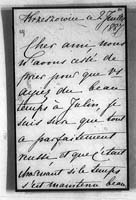 a 2 Juillet
1887
Cher ami, nous
n'avons cessé de
prier pour que Vs
ayiez du beau
temps à
je
suis sûr que tout
a parfaitement
réussi et que c'était
charmant si le temps
s'est maintenu beau